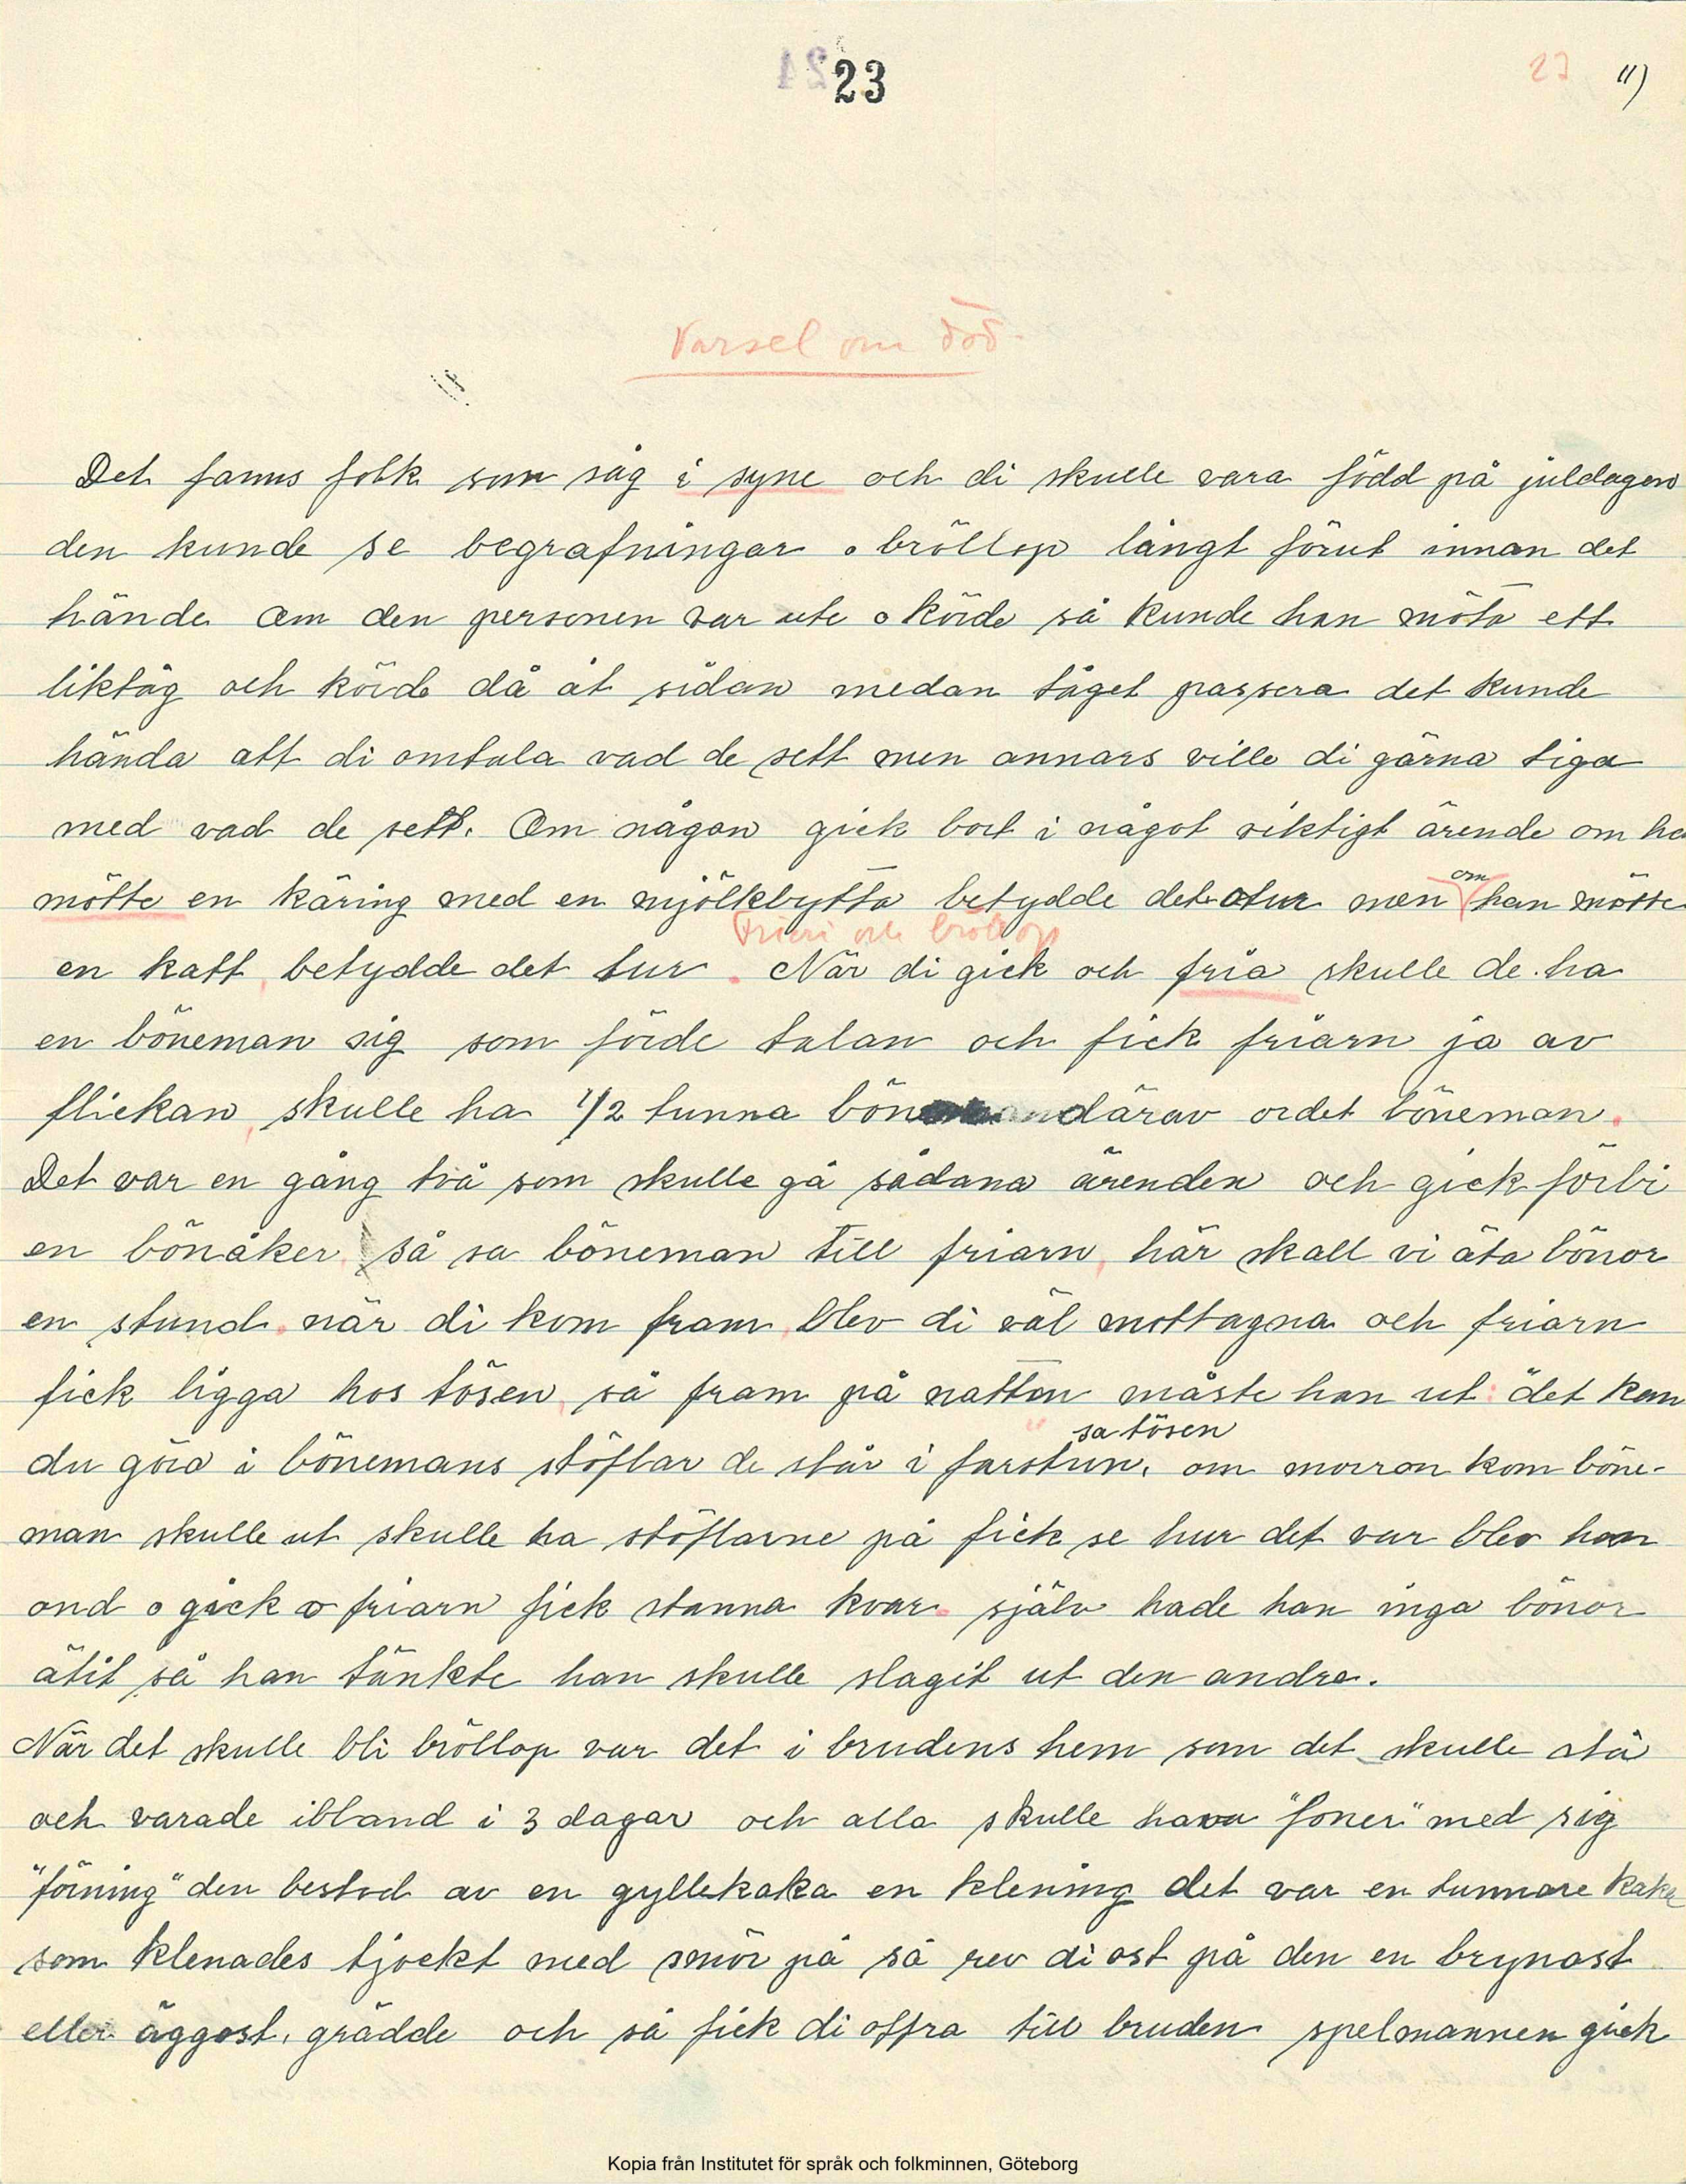 23
27 11)
Varsel om död.
Det fanns folk som såg i syne och di skulle vara född på juldagen
den kunde se begrafningar o bröllop långt förut innan det
hände Om den personen var ute o körde så kunde han möta ett
liktåg och körde då åt sidan medan tåget passera det kunde
hända att di omtala vad de sett men annars ville di gärna tiga
med vad de sett. Om någon gick bort i något viktigt ärende om ha
mötte en käring med en mjölkbytta betydde det otur men om han mötte
Frieri och bröllop
en katt, betydde det tur. När di gick och fria skulle de ha
en böneman sig som förde talan och fick friarn ja av
flickan, skulle ha 1/2 tunna bön därav ordet böneman.
Det var en gång två som skulle gå sådana ärenden och gick förbi
en bönåker, så sa böneman till friarn, här skall vi äta bönor
en stund. när di kom fram, blev di väl mottagna och friarn
fick ligga hos tösen, så fram på natten måste han ut: "det kan
du göra i bönemans stöflar de står i farstun," sa tösen om morron kom böne-
man skulle ut skulle ha stöflarne på fick se hur det var blev han
ond o gick o friarn fick stanna kvar. själv hade han inga bönor
ätit så han tänkte han skulle slagit ut den andra.
När det skulle bli bröllop var det i brudens hem som det skulle stå
och varade ibland i 3 dagar och alla skulle hava "foner" med sig
"förning" den bestod av en gyllekaka en klening det var en tunnare kaka
som klenades tjockt med smör på så rev di ost på den en brynost
eller äggost, grädde och så fick di offra till bruden spelmannen gick
Kopia från Institutet för språk och folkminnen, Göteborg